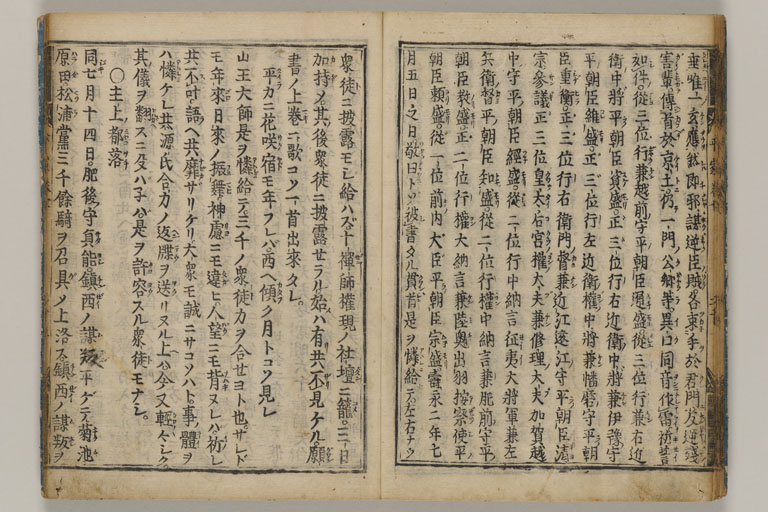 垂唯一玄應然即邪謀逆臣賊各束手於君門及逆殘
害輩傳首於京土仍一門ノ公卿等異口同音作雷祈誓
如件從三位行兼越前守平朝臣通盛從三位行兼右近
衛中將平朝臣資盛正三位行右近衛中將兼伊豫守
平朝臣維盛正三位行左近衛權中將兼播磨守平朝
臣重衡正三位行右衛門督兼近江遠江守平朝臣清
宗參議正三位皇太后宮權大夫兼修理大夫加賀越
中守平朝臣經盛從二位行中納言征夷大將軍兼左
兵衛督平朝臣知盛從二位行權中納言兼肥前守平
朝臣敎盛正二位行權大納言兼陸奧出羽按察使平
朝臣頼盛從一位前内大臣平朝臣宗盛壽永二年七
月五日之日敬白トソ被書タル貫首是ヲ憐給テ左右ナク
衆徒ニ披露モシ給ハズ十禪師權現ノ社壇ニ籠三日
加持メ其後衆徒ニ披露セラル始ハ有共不見ケル願
書ノ上卷ニ歌コソ一首出來タレ。
平カニ花咲宿モ年フレハ西ヘ傾ク月トコソ見レ
山王大師是ヲ憐給テ三千ノ衆徒力ヲ合セヨト也。サレド
モ年來日來ノ振舞神慮ニモ違ヒ人望ニモ背ヌレハ祈レ
共不叶語ヘ共靡サリケリ大衆モ誠ニサコソハト。事ノ體ヲ
ハ憐ケレ共源氏合力ノ返牒ヲ送リヌル上ハ今又輕々シク
其儀ヲ翻スニ及ハ子ハ是ヲ許容スル衆徒モナシ。
〇主上都落
同七月十四日。肥後守貞能鎮西ノ謀叛平ゲテ菊池
原田松浦黨三千餘騎ヲ召具メ上洛ス鎮西ノ謀叛ヲ